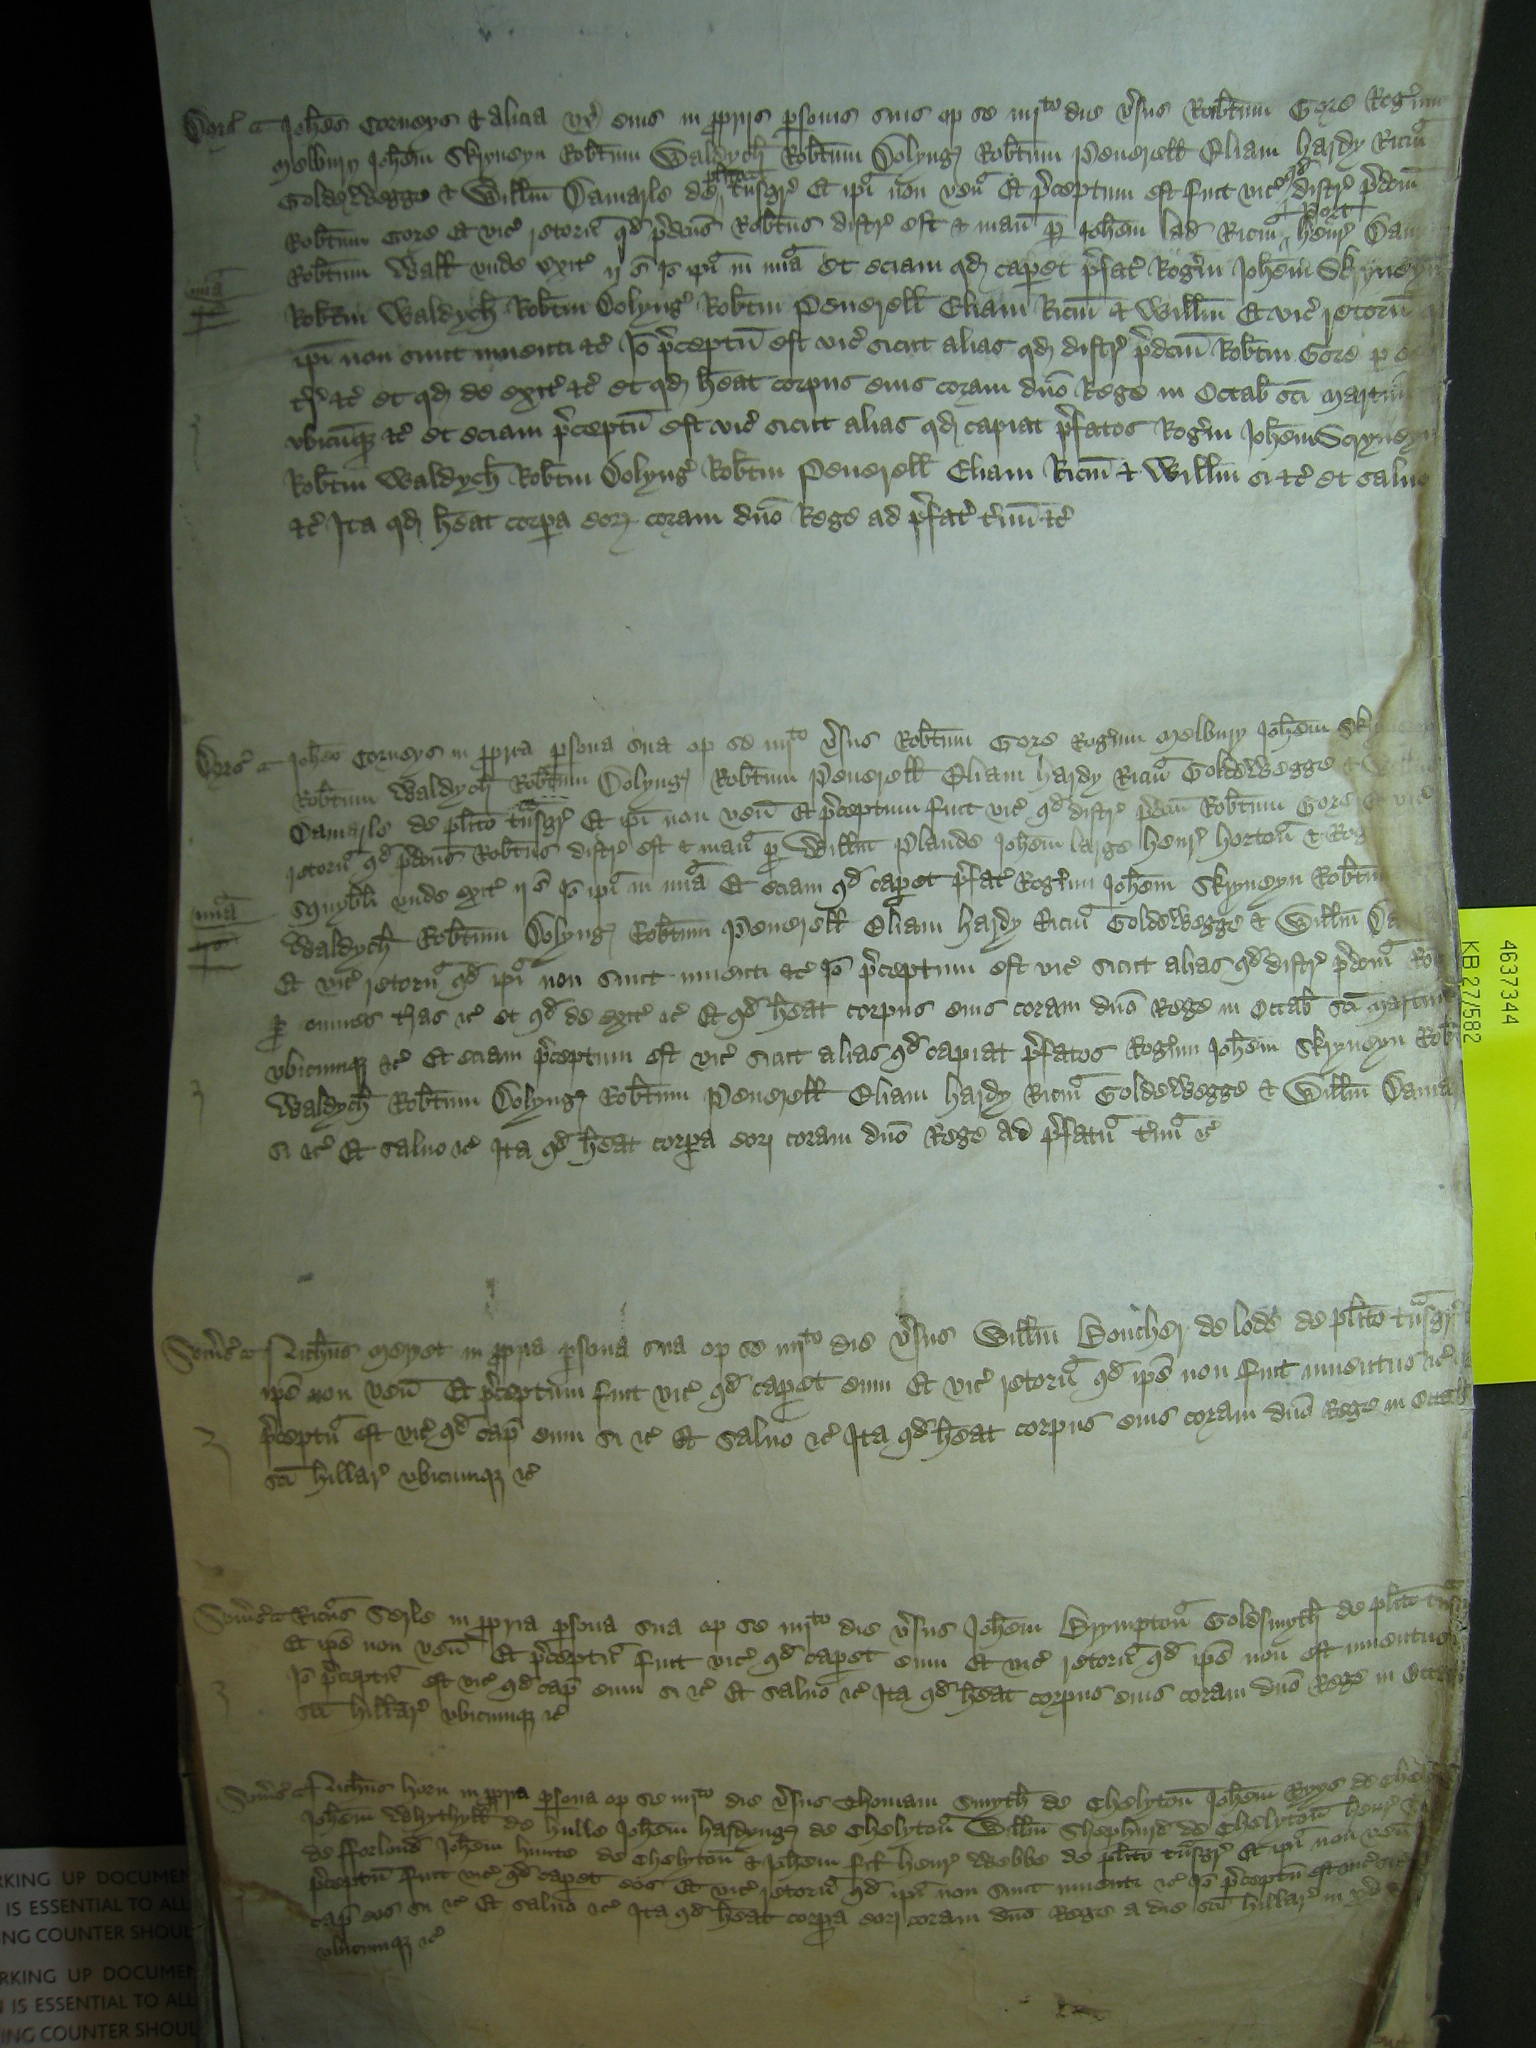 Dors' ¶ Joh̄es Corneys & Alicia ux̄ eius in ꝓpriis ꝑsonis suis op se iiijto die v̓sus Rob̄tum Gore Rog̓um
Melbury Joh̄em Skryneyn Rob̄tum Waldych̄ Rob̄tum Dolyng Rob̄tum Peuerell Eliam Hardy Ricm̄
Goldewegge & Will̄m Damarle de pl̄ito t̓nsgr̄ Et ip̄i non ven̄ Et p̓ceptum est fuit vic̓ qd̓ distr̓ p̓dcm̄
Rob̄tum Gore Et vic̓ retorn̄ qd̓ p̓dcūs Rob̄tus distr̓ est & man̄ ꝑ Joh̄em Lad Ricm̄ Port Henr̓ Dam
Rob̄tum Wall unde exit̓ ij s̄ Jō ip̄i in mīa Et eciam qd̓ caperet p̓fat̓ Rog̓m Joh̄em Skryneyn
mīa
Rob̄tm Waldych̄ Rob̄tm Dolyng̓ Rob̄tm Peuerell Eliam Ricm̄ & Will̄m Et vic̓ retorn̄ qd̓
ip̄i non sunt inuenti &c̓ Jō p̓ceptū est vic̓ sicut alias qd̓ distr̓ p̓dcm̄ Rob̄tm Gore ꝑ
t̓r̓ &c̓ et qd̓ de exit̓ &c̓ et qd̓ hēat corpus eius coram dn̄o Rege in Octab̄ sc̄i Martini
ubicūqꝫ &c̓ et eciam p̓ceptū est vic̓ sicut alias qd̓ capiat p̓fatos Rog̓m Joh̄em Scryneyn
Rob̄tm Waldych̄ Rob̄tm Dolyng̓ Rob̄tm Peuerell Eliam Ricm̄ & Will̄m si &c̓ et saluo
&c̓ Ita qd̓ hēat corpa eoꝝ coram dn̄o Rege ad p̓fat̓ t̓mū &c̓
Dors' ¶ Joh̄es Corneys in ꝓpria ꝑsona sua op se iiijto v̓sus Rob̄tum Gore Rog̓um Melbury Joh̄em Skryneyn
Rob̄tum Waldych̄ Rob̄tum Dolyng Rob̄tum Peuerell Eliam Hardy Ricm̄ Goldewegge & Will̄m
Damarle de pl̄ito t̓nsgr̓ Et ip̄i non ven̄ Et p̓ceptum fuit vic̓ qd̓ distr̓ p̓dcm̄ Rob̄tum Gore Et vic̓
retorn̄ qd̓ p̓dcūs Rob̄tus distr̓ est & man̄ ꝑ Will̄m Plande Joh̄em Large Henr̓ Horton̄ & Rog
Snybll unde exit̓ ij s̄ Jō ip̄i in mīa Et eciam qd̓ caperet p̓fat̓ Rog̓um Joh̄em Skryneyn Rob̄tum
mīa
Waldych̄ Rob̄tum Dolyng Rob̄tum Peuerell Eliam Hardy Ricm̄ Goldewegge & Will̄m Da
Et vic̓ retorn̄ qd̓ ip̄i non sunt inuenti &c̓ Jō p̓ceptum est vic̓ sicut alias qd̓ distr̓ p̓dcm̄ Ro
ꝑ omnes t̓ras &c̓ et qd̓ de exit̓ &c̓ Et qd̓ hēat corpus eius coram dn̄o Rege in Octab̄ sc̄i Martini
ubicumqꝫ &c̓ Et eciam p̓ceptum est vic̓ sicut alias qd̓ capiat p̓fatos Rog̓um Joh̄em Skryneyn Rob̄
Waldych̄ Rob̄tum Dolyng Rob̄tum Peuerell Eliam Hardy Ricm̄ Goldewegge & Will̄m Dama
si &c̓ Et saluo &c̓ Ita qd̓ hēat corpa eoꝝ coram dn̄o Rege ad p̓fatū t̓mū &c̓
Som̓s' ¶ Nich̄us Meryet in ꝓpria ꝑsona sua op se iiijto die v̓sus Will̄m Boucher de Lode de pl̄ito t̓nsgr̓
ip̄e non ven̄ Et p̓ceptum fuit vic̓ qd̓ caperet eum Et vic̓ retorn̄ qd̓ ip̄e non fuit inuentus &c̓
p̓ceptū est vic̓ qd̓ cap̄ eum si &c̓ Et saluo &c̓ Ita qd̓ hēat corpus eius coram dn̄o Rege in Octab̄
sc̄i Hillar̓ ubicumqꝫ &c̓
Som̓s' ¶ Ricūs Serle in ꝓpria ꝑsona sua op se iiijto die v̓sus Joh̄em Brympton̄ Goldsmyth̄ de pl̄ito t̓ns
Et ip̄e non ven̄ Et p̓ceptū fuit vic̓ qd̓ caperet eum Et vic̓ retorn̄ qd̓ ip̄e non est inuentus
Jō p̓ceptū est vic̓ qd̓ cap̄ eum si &c̓ Et saluo &c̓ Ita qd̓ hēat corpus eius coram dn̄o Rege in Octab̄
sc̄i Hillar̓ ubicumqꝫ &c̓
Som̓s' ¶ Nich̄us Horn in ꝓpria ꝑsona op se iiijto die v̓sus Thomam Smyth̄ de Chelyton̄ Joh̄em Ryys de Chel
Joh̄em Whythyll de Hulle Joh̄em Hardyng de Chelyton̄ Will̄m Shephurd de Chelyton̄ Henr̓
de fforlond Joh̄em Hunte de Chelyton̄ & Joh̄em fil̄ Henr̓ Webbe de pl̄ito t̓nsgr̓ Et ip̄i non ven̄
p̓ceptū fuit vic̓ qd̓ caperet eos Et vic̓ retorn̄ qd̓ ip̄i non sunt inuenti &c̓ Jō p̓ceptū est vic̓
cap̄ eos si &c̓ Et saluo &c̓ Ita qd̓ hēat corpa eoꝝ coram dn̄o Rege a die sc̄i Hillar̓ in xv
ubicumqꝫ &c̓
4637344
KB 27/582
RKING UP DOCUMEN
IS ESSENTIAL TO ALL
ING COUNTER SHOUL
RKING UP DOCUMEN
IS ESSENTIAL TO ALL
ING COUNTER SHOUL